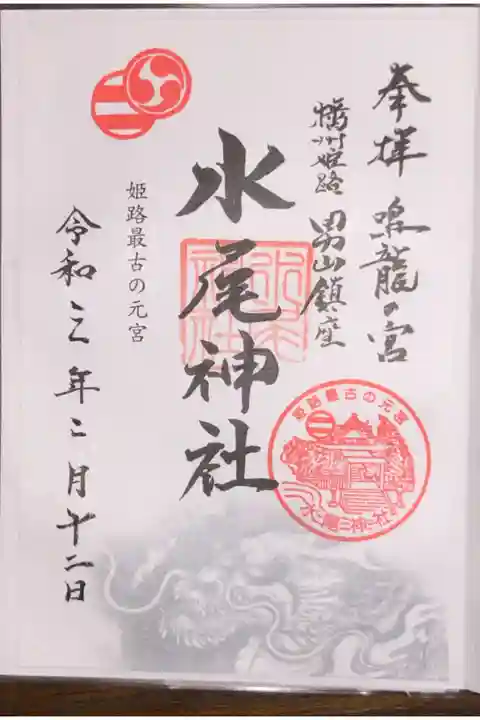 奉拝 鳴龍の宮
播州姫路 男山鎮座
水尾神社
姫路最古の元宮
令和三年二月十二日
姫路最古の元宮
水尾神社